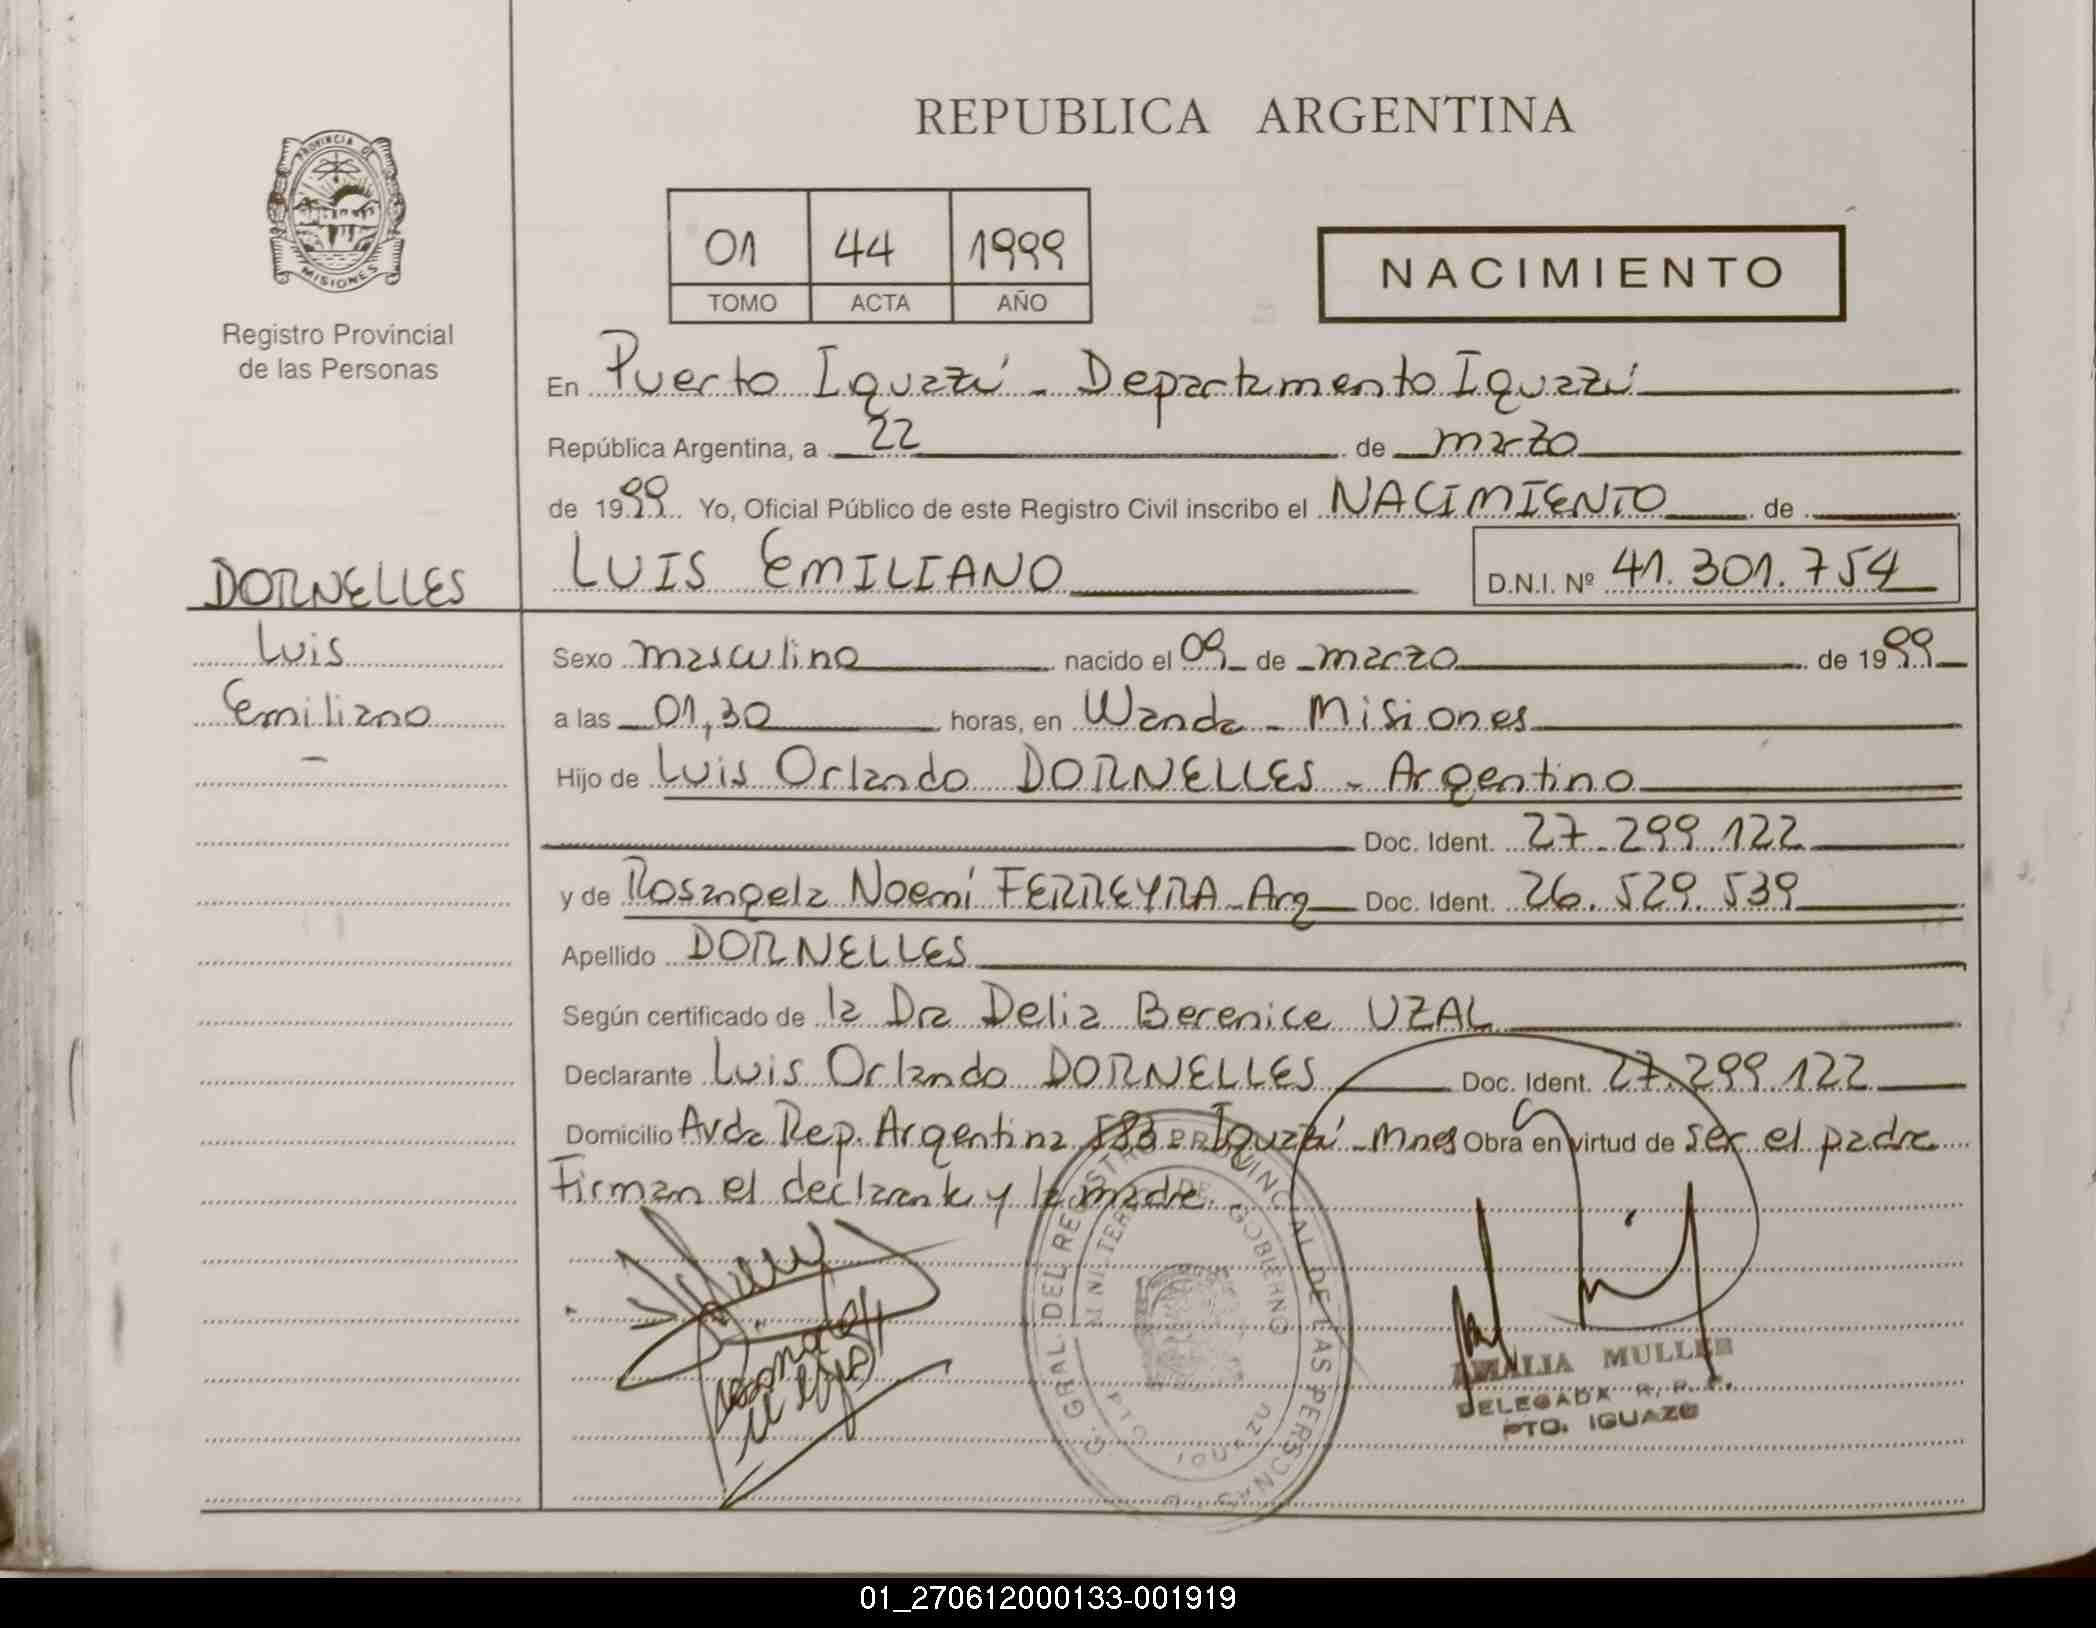 REPUBLICA ARGENTINA
PROVINCIA DE
MISIONES
Registro Provincial
de las Personas
01 44 1999
TOMO ACTA AÑO
NACIMIENTO
En Puerto Iguazú - Departamento Iguazú
República Argentina, a 22 de marzo
de 1999 Yo, Oficial Público de este Registro Civil inscribo el NACIMIENTO de
DORNELLES
LUIS EMILIANO D.N.I. Nº 41.301.754
Luis
Emiliano
Sexo masculino nacido el 09 de marzo de 1999
a las 01,30 horas, en Wanda - Misiones
Hijo de Luis Orlando DORNELLES - Argentino
Doc. Ident. 27.299.122
y de Rosangela Noemí FERREYRA - Arg Doc. Ident. 26.529.539
Apellido DORNELLES
Según certificado de la Dra Delia Berenice UZAL
Declarante Luis Orlando DORNELLES Doc. Ident. 27.299.122
Domicilio Avda Rep. Argentina 583 - Iguazú - Mnes Obra en virtud de ser el padre
Firman el declarante y la madre.
GRAL. DEL REGISTRO PROVINCIAL DE LAS PERSONAS
MINISTERIO DE GOBIERNO
IGUAZU
AMALIA MULLER
DELEGADA R. P. P.
PTO. IGUAZU
01_270612000133-001919